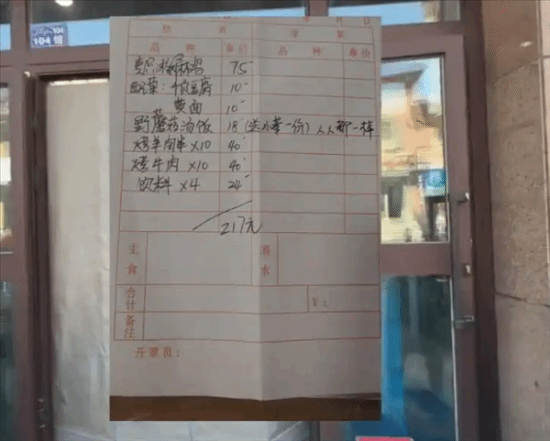 104
品种 单价 品种 单价
麻辣鸡 75
配菜：千页豆腐 10
黄面 10
野蘑菇汤饭 18 (送小菜一份) 人人都一样
烤羊肉串 x10 40
烤牛肉 x10 40
饮料 x4 24
217元
主食 酒水
合计 ¥:
备注
开票员：